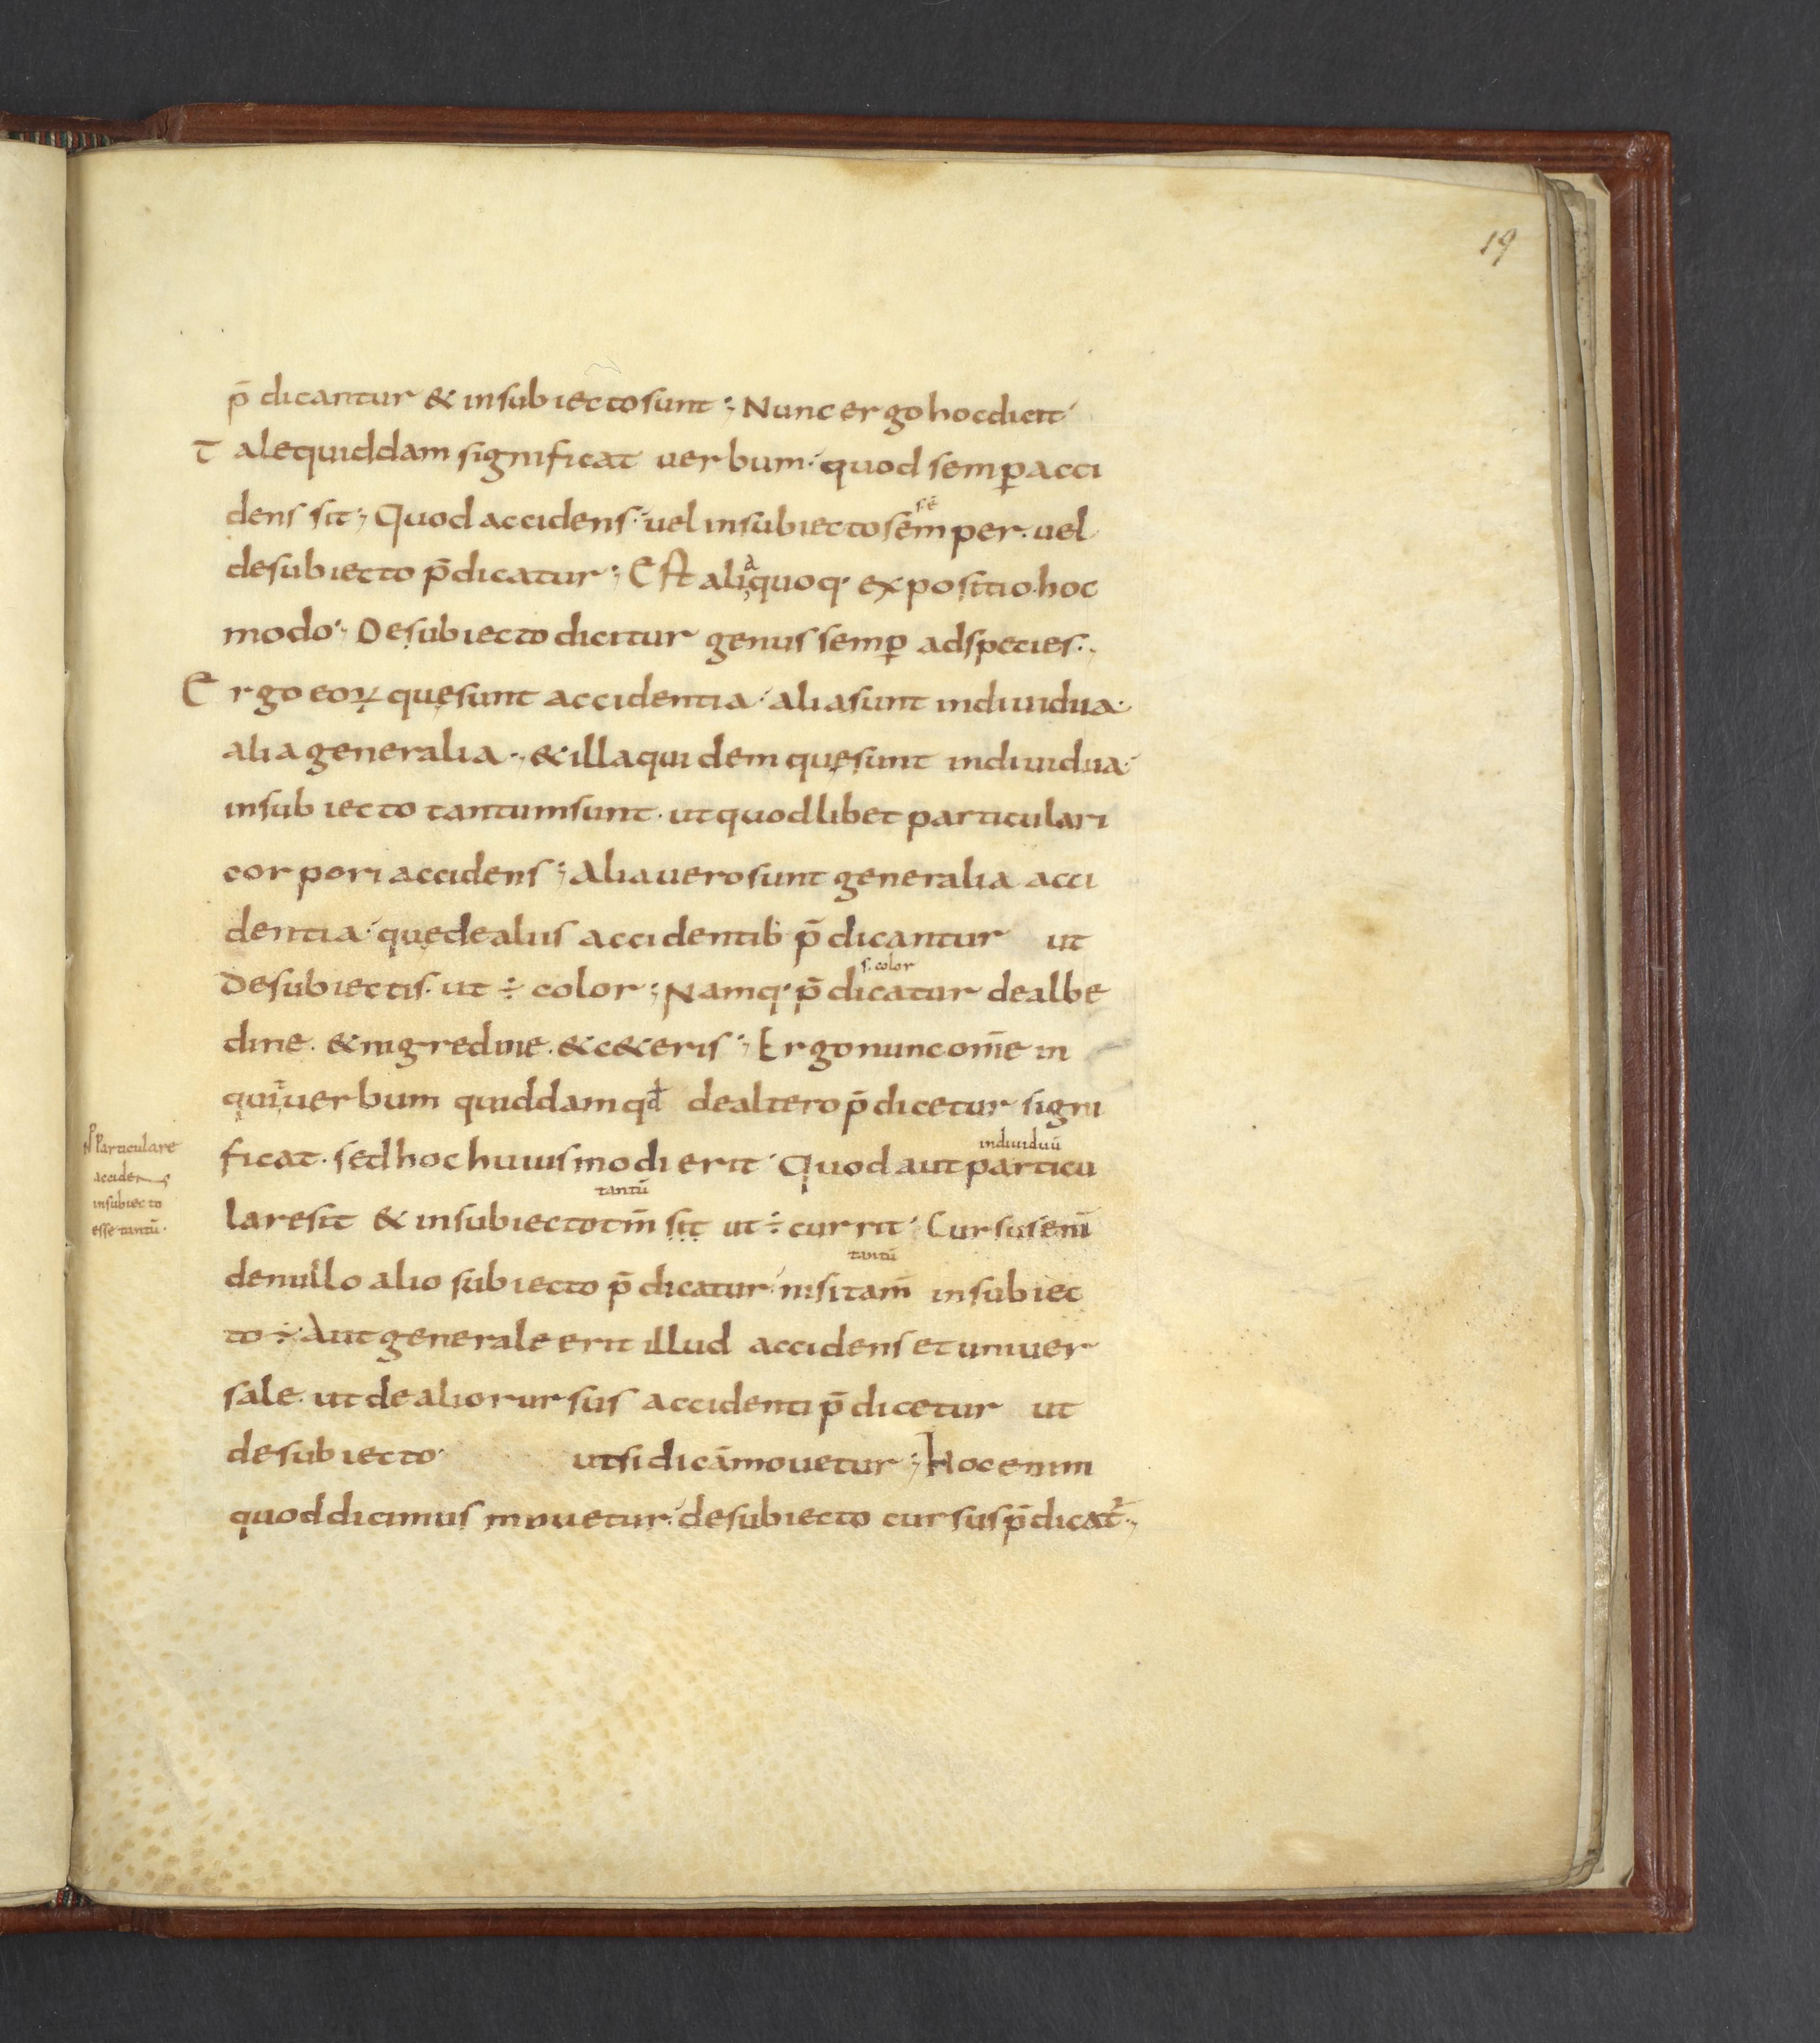 19
p̄dicantur & insubiectosunt ; Nunc ergo hoc dicit
Talequiddam significat uerbum· quod semꝑ acci
s· ē
dens sit ; Quod accidens· uel insubiecto semper· uel
a
desubiecto p̄dicatur ; Est aliquoq· expositio hoc
modo ; Desubiecto dicitur genus semꝑ adspecies·
Ergo eoꝝ quęsunt accidentia· alia sunt indiuidua·
alia generalia· & illa quidem quęsunt indiuidua·
insubiecto tantum sunt· ut quodlibet particulari
corpori accidens ; Alia uero sunt generalia acci
dentia· quęde aliis accidentib· p̄dicantur ut
s· color
Desubiectis· ut ÷ color ; Namq· p̄dicatur dealbe
dine· & nigredine· & c&eris ; Ergo nunc om̄e in
quit uerbum quiddam qđ dealtero p̄dicetur signi
indiuiduū
ficat· sed hoc huiusmodi erit· Quod aut particu
tantū
lare sit & insubiecto tm̄ sit ut ÷ currit· Cursus enī
tantū
denullo alio subiecto p̄dicatur· nisi tam̄ insubiec
to ÷ Aut generale erit illud accidens et uniuer
sale· ut de alio rursus accidenti p̄dicetur ut
desubiecto· ut si dicā mouetur ; Hoc enim
quod dicimus mouetur· desubiecto cursus p̄dicat᷑·
Particulare
accidens
insubiecto
esse tantū·